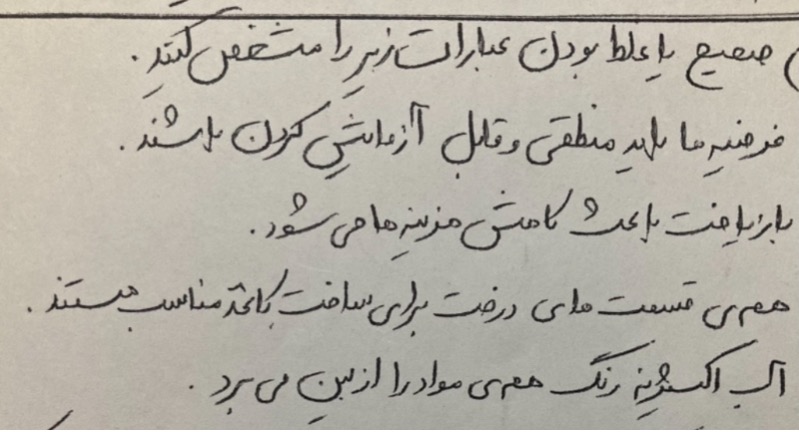 صحیح یا غلط بودن عبارات زیر را مشخص کنید.
فرضیه ها باید منطقی و قابل آزمایش کردن باشند.
بازیافت باعث کاهش هزینه ها می شود.
همه‌ی قسمت های درخت برای ساخت کاغذ مناسب هستند.
آب اکسیژنه رنگ همه‌ی مواد را از بین می برد.